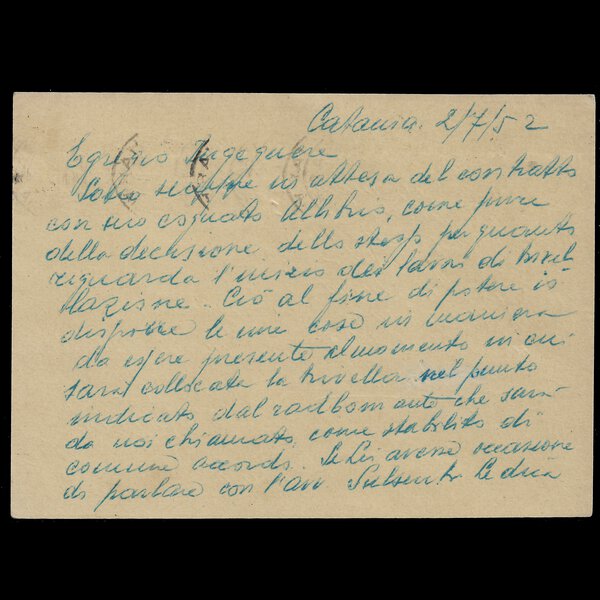 Catania. 2/7/52
Egregio Ingegnere
Sono sempre in attesa del contratto
con suo cognato come pure
della decisione dello stesso per quanto
riguarda l'inizio dei lavori di trivel
lazione. Ciò al fine di potere io
disporre le mie cose in maniera
da essere presente al momento in cui
sarà collocata la trivella nel punto
indicato dal che sarà
da noi chiamato, come stabilito di
comune accordo. Se Lei avesse occasione
di parlare con l'avv le dica